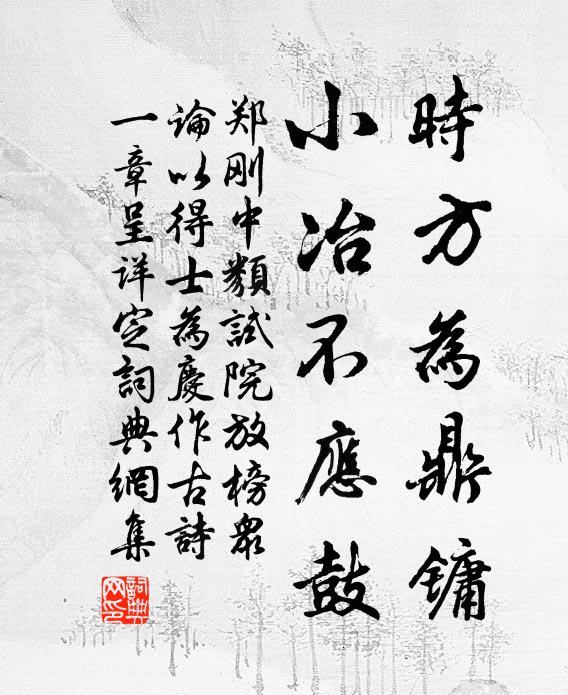 時方為鼎鏞
小冶不應鼓
郑刚中類試院放榜眾
論以得士為慶作古詩
一章呈详定詞典網集